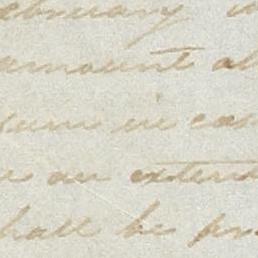 ebruary
amount al
sum in cas
an extend
hall be pr